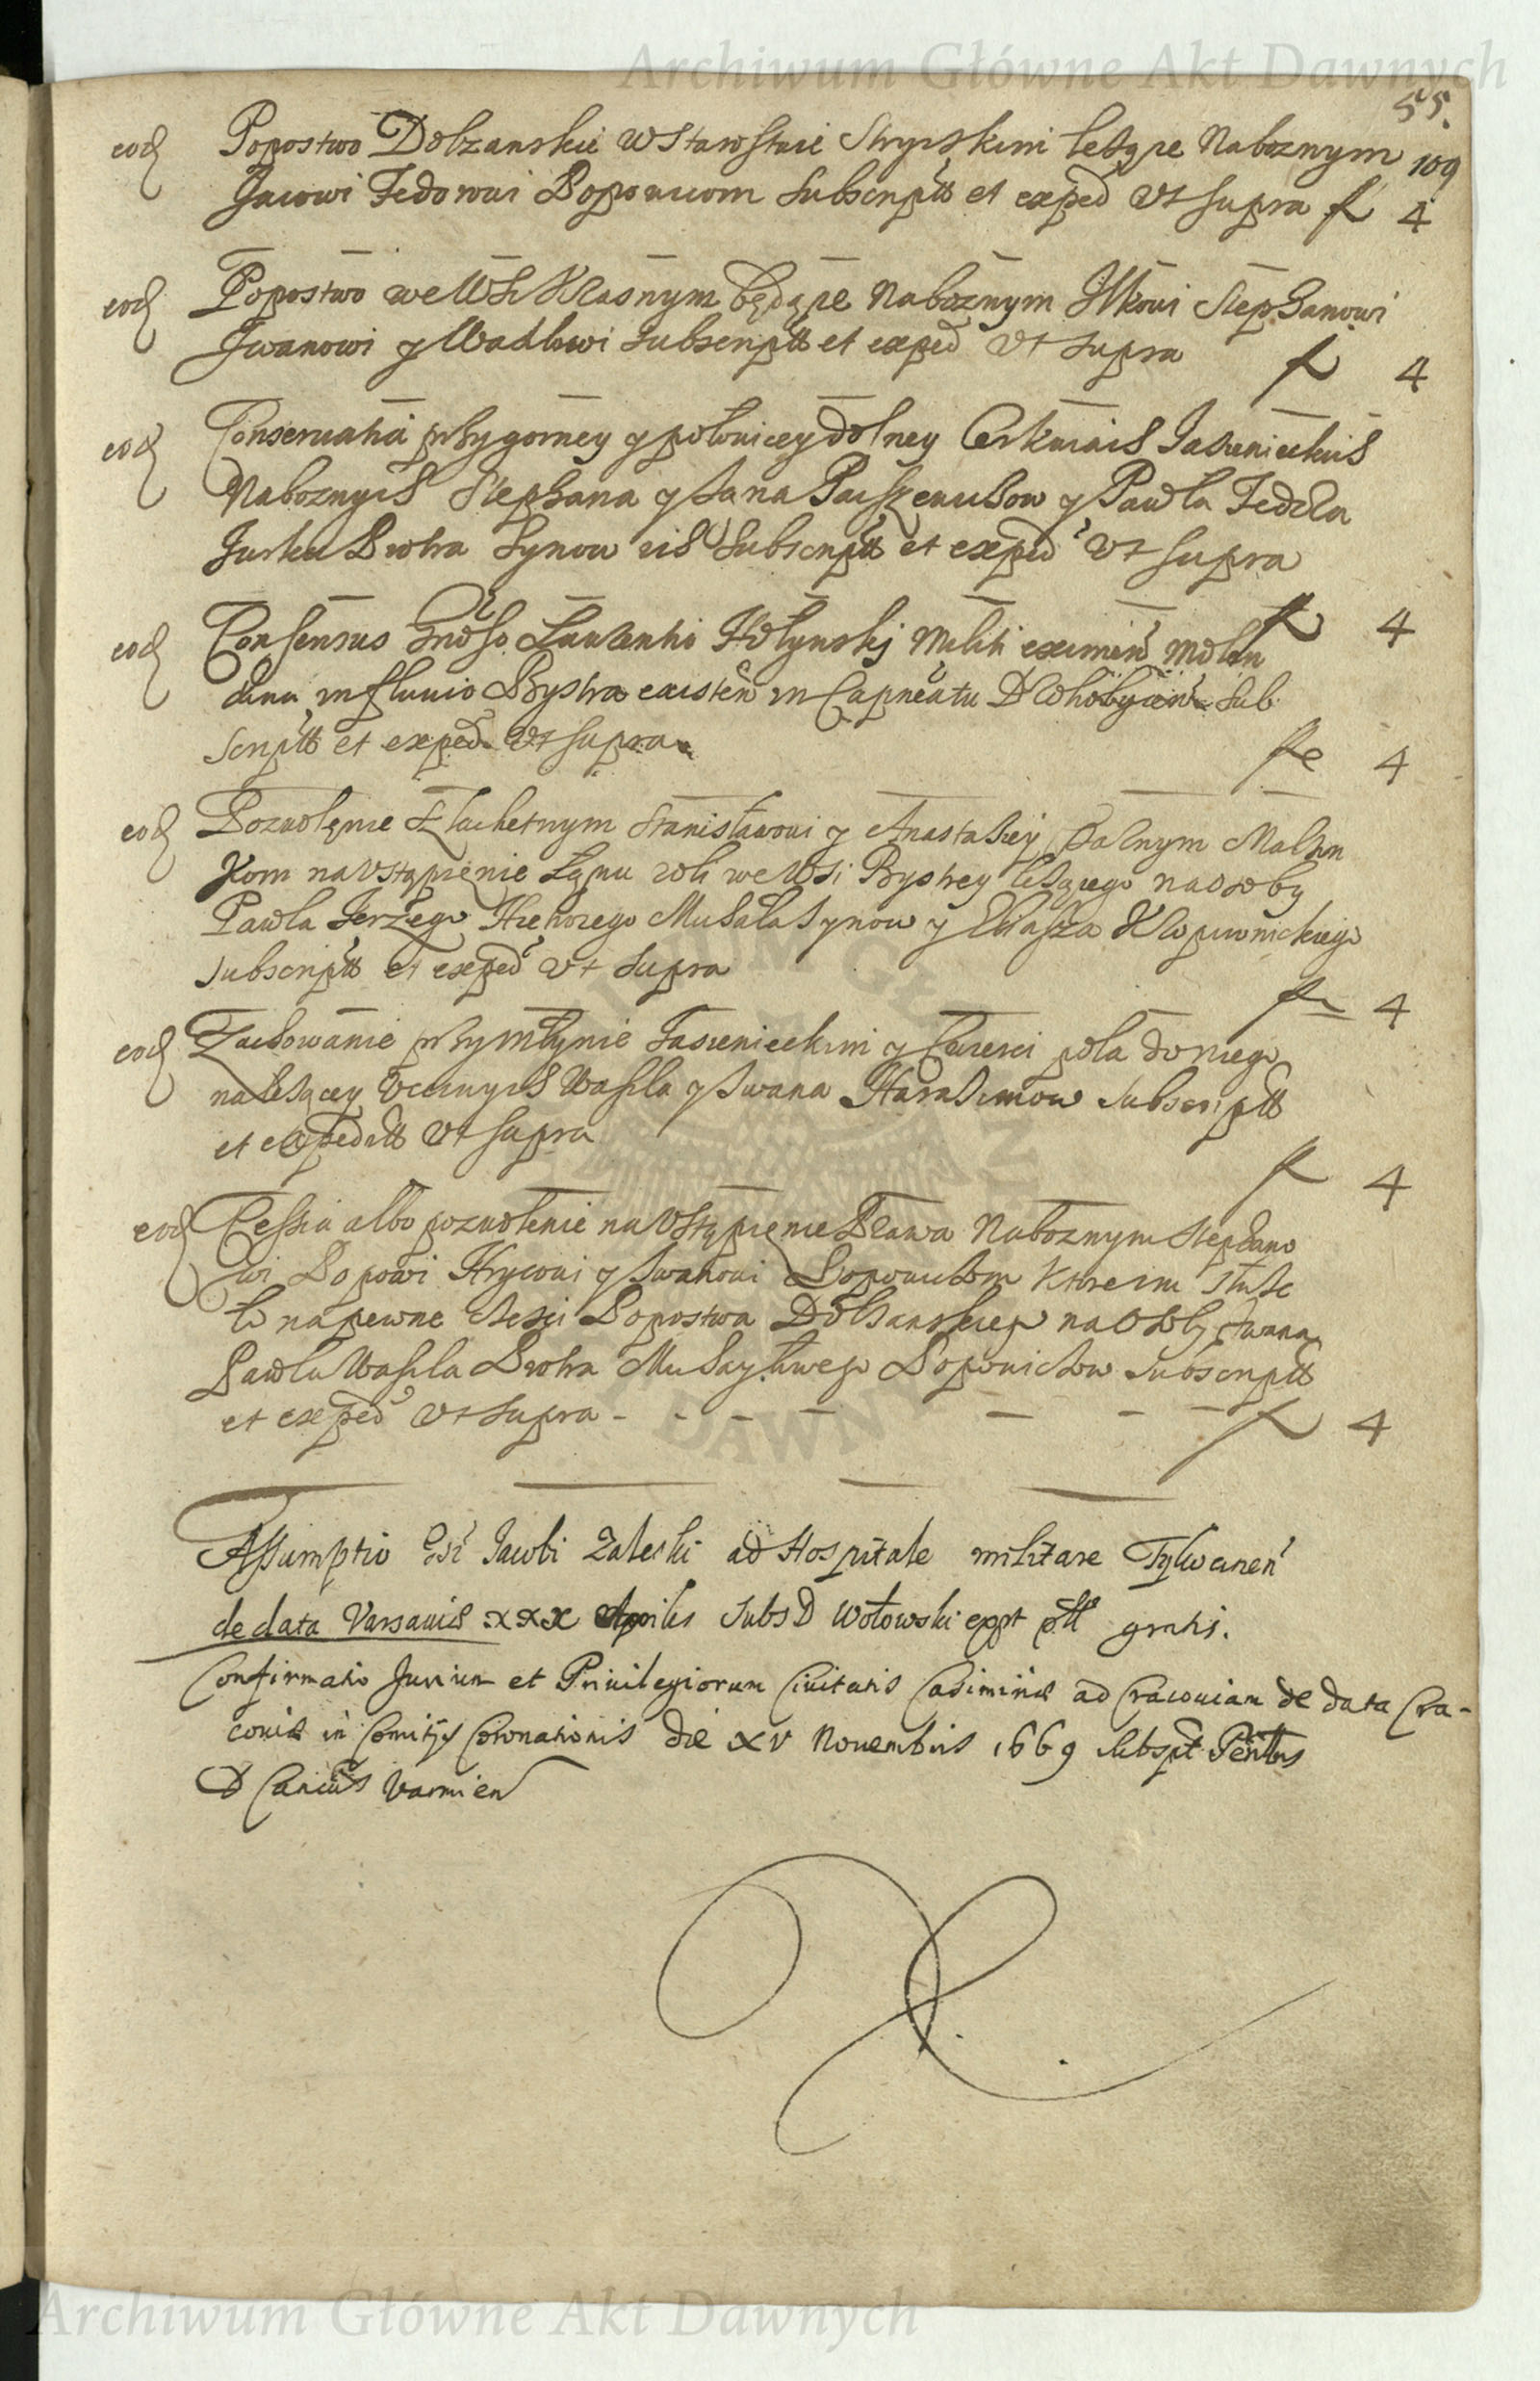 Archiwum Główne Akt Dawnych
55.
109
eod Popostwo Dolzanskie w Starostwie Stryiskim lezące Naboznym
Jacowi Fedorowi Popowicom Subscriptt et exped vt supra f 4
eod Popostwo we Wsi Krasnym będące Naboznym Ilkowi Stephanowi
Iwanowi y Wasilowi Subscriptt et exped vt supra f 4
eod Conservatia przy gorney y połowicey dolney Cerkwiach Jasienickich
Naboznych Stephana y Jana y Pawla Fedka
Jurka Piotra Synow ich Subscriptt et exped vt supra
f 4
eod Consensus Gnoso Laurentio Hołynskj Militi molen
dinu in fluvio Bystra existen in Capneatu Drohobycien Sub
scriptt et exped vt supra
f 4
eod Pozwolęnie Szlachetnym Stanisławowi y Anastasiey Małzon
kom na vstąpięnie Łąnu roli we Wsi Bystrey lezącego na osoby
Pawla Jerzego Hrehorego Muchala Synow y Eliasza Kłopiwnickiego
subscriptt et exped vt supra
f 4
eod Zachowanie przy młynie Jasienieckim y Części pola do niego
nalezącey Vccziwych Wasila y Iwana Harasimow Subscriptt
et expeditt vt supra
f 4
eod Cessia albo pozwolenie na vstąpięnie Prawa Naboznym Stephano
wi Popowi Hrycowi y Iwanowi Popowiczom ktore im słuze
ło na pewne części Popostwa Dolzanskiego na osoby Iwana
Pawła Wasila Piotra Muchayłowego Popowiczow Subscriptt
et exped vt supra - - - - - - - f 4
Assumptio Jacobi Zaleski ad Hospitale militare Tykocinen
de data Varsaviae xxx Aprilis Subs D Wołowski gratis.
Confirmatio Jurium et Privilegiorum Civitatis Casimiriae ad Cracoviam de data Cra-
coviae in Comitijs Coronationis die XV Novembris 1669 Subspt
D Varmien
Archiwum Główne Akt Dawnych